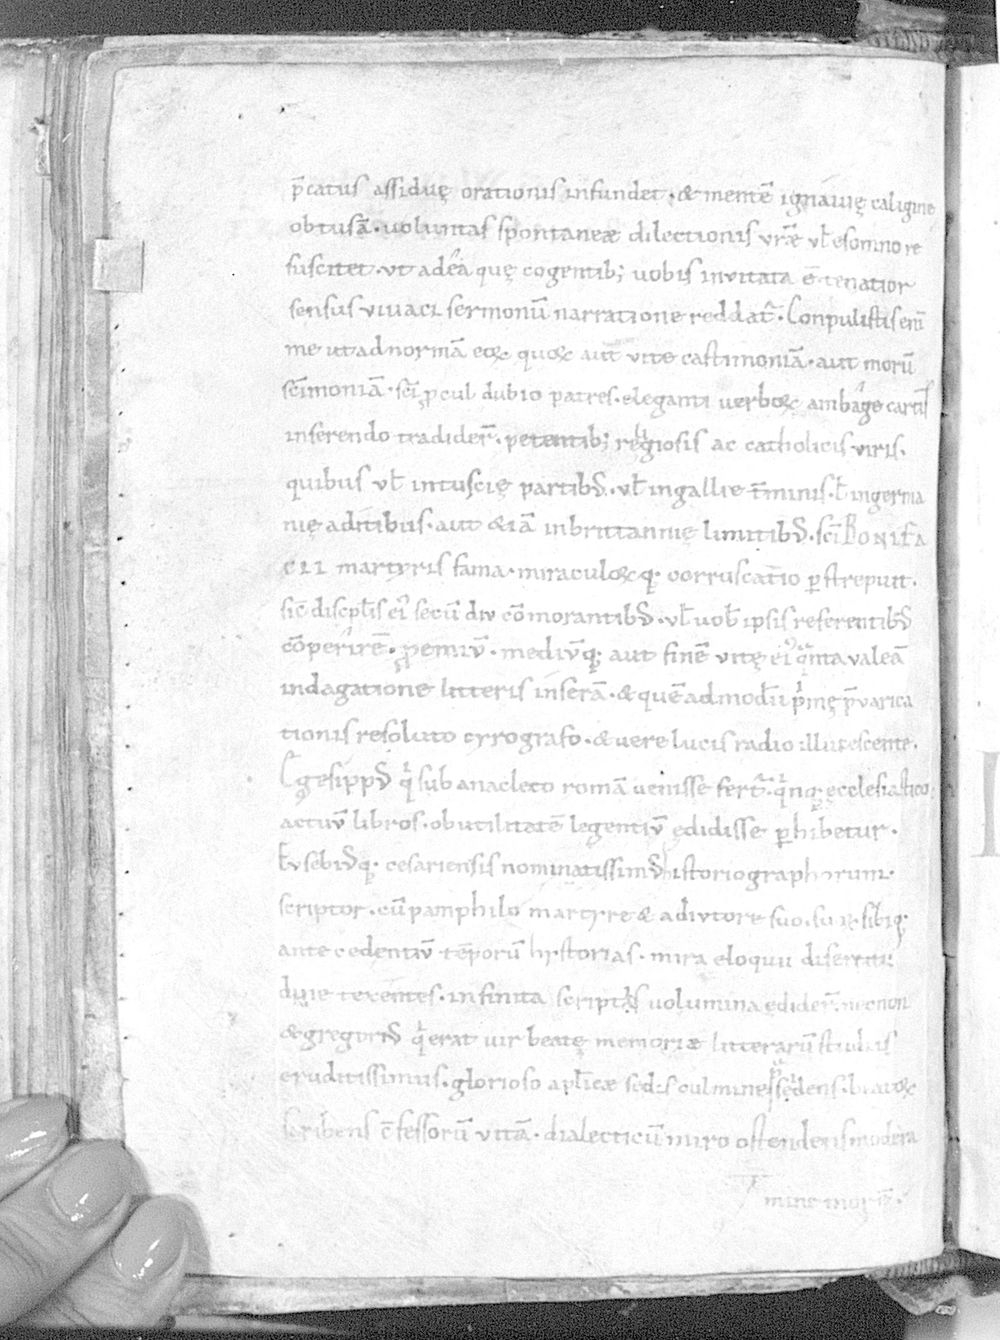 p̄catus assiduę orationis infundet · & mentē ignauię caligine
obtusā · voluntas spontaneæ dilectionis vrǣ vł esomno re
suscitet · vt adea quę cogentib; uobis invitata ē tenatior
sensus vivaci sermonū narratione reddat᷑ · Conpulistis eni̅
me ut ad normā eoꝝ quoꝝ aut vite castimoniā · aut morū
scīmoniā · scī ꝓcul dubio patres · eleganti uerboꝝ ambage cartis
inserendo tradider̄ · petentib; religiosis ac catholicis viris ·
quibus vł intuscię partibꝰ · vł ingallie t̄minis · ł ingerma
nię aditibus · aut &iā inbrittannię limitibꝰ · scī BONIFA
CII martyris fama · miraculoꝝ q· corruscatio ꝑstrepuit ·
sic discipłis ei᾽ secū div cōmorantibꝰ · vł uob̄ ipsis referentibꝰ
cōperirē · ꝓemiū · mediūq; aut finē vitę ei᾽ qnta valeā
indagatione litteris inserā · & quēadmodū pⁱmę p̄varica
tionis resoluto cyrografo · & uere lucis radio illucescente ·
Egesippꝰ qⁱ sub anacleto romā uenisse fert᷑ · qⁱnq; ecclesiasticoꝝ
actuū libros · ob utilitatē legentiū ędidisse ꝑhibetur ·
Evsebiꝰq; cesariensis nominatissimꝰ historiographorum
scriptor · cū pamphilo martyre & adivtore suo · suis sibiq;
antecedentiū tēporū hystorias · mira eloquii disertitu
dine texentes · infinita scriptis volumina ędider̄ · necnon
& gregoriꝰ qⁱ erat vir beatę memoriæ litterarū studiis
eruditissimus · glorioso apłicæ sedis culmine p̄sedens · beatoꝝ
scribens c̄fessorū vitā · dialecticū miro ostenderis modera
mine morē ·